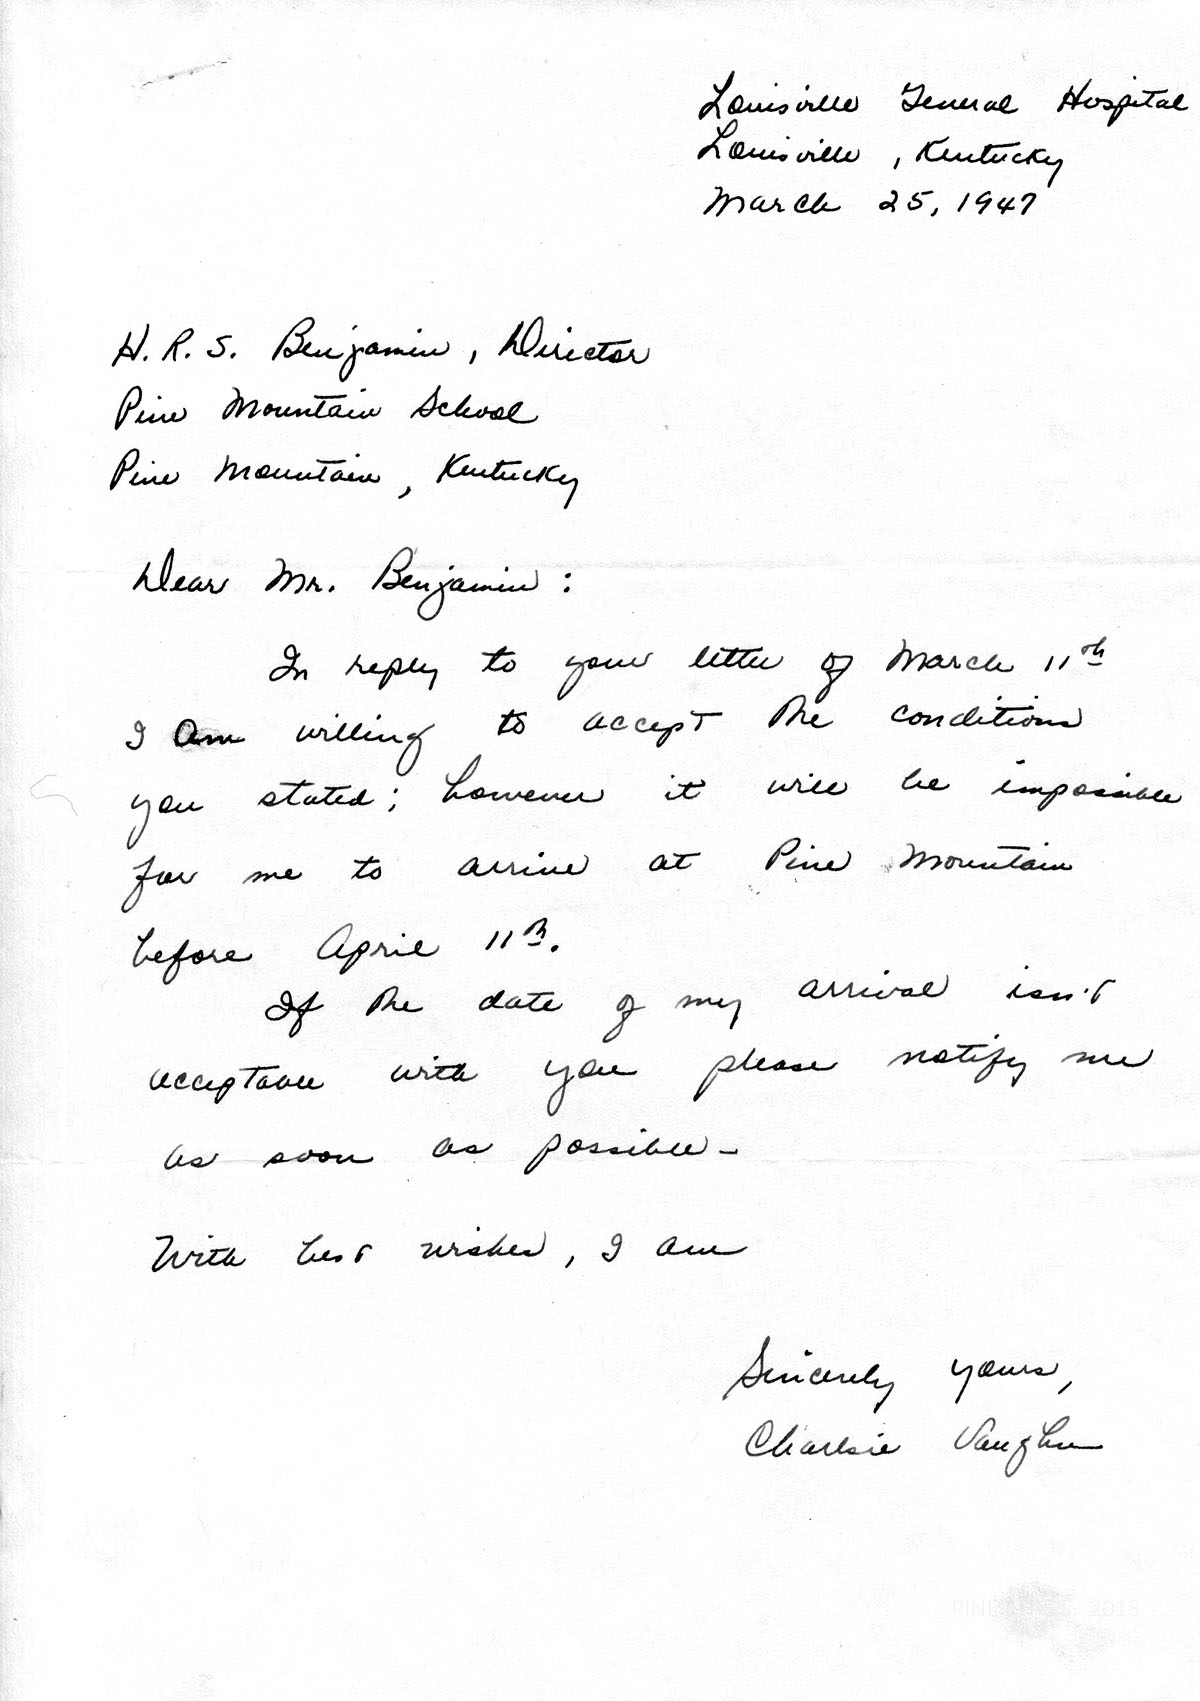 Louisville General Hospital
Louisville, Kentucky
March 25, 1947
H. R. S. Benjamin, Director
Pine Mountain School
Pine Mountain, Kentucky
Dear Mr. Benjamin:
In reply to your letter of March 11th
I am willing to accept the conditions
you stated; however it will be impossible
for me to arrive at Pine Mountain
before April 11th.
If the date of my arrival isn't
acceptable with you please notify me
as soon as possible-
With best wishes, I am
Sincerely yours,
Charlsie Vaughn
2018